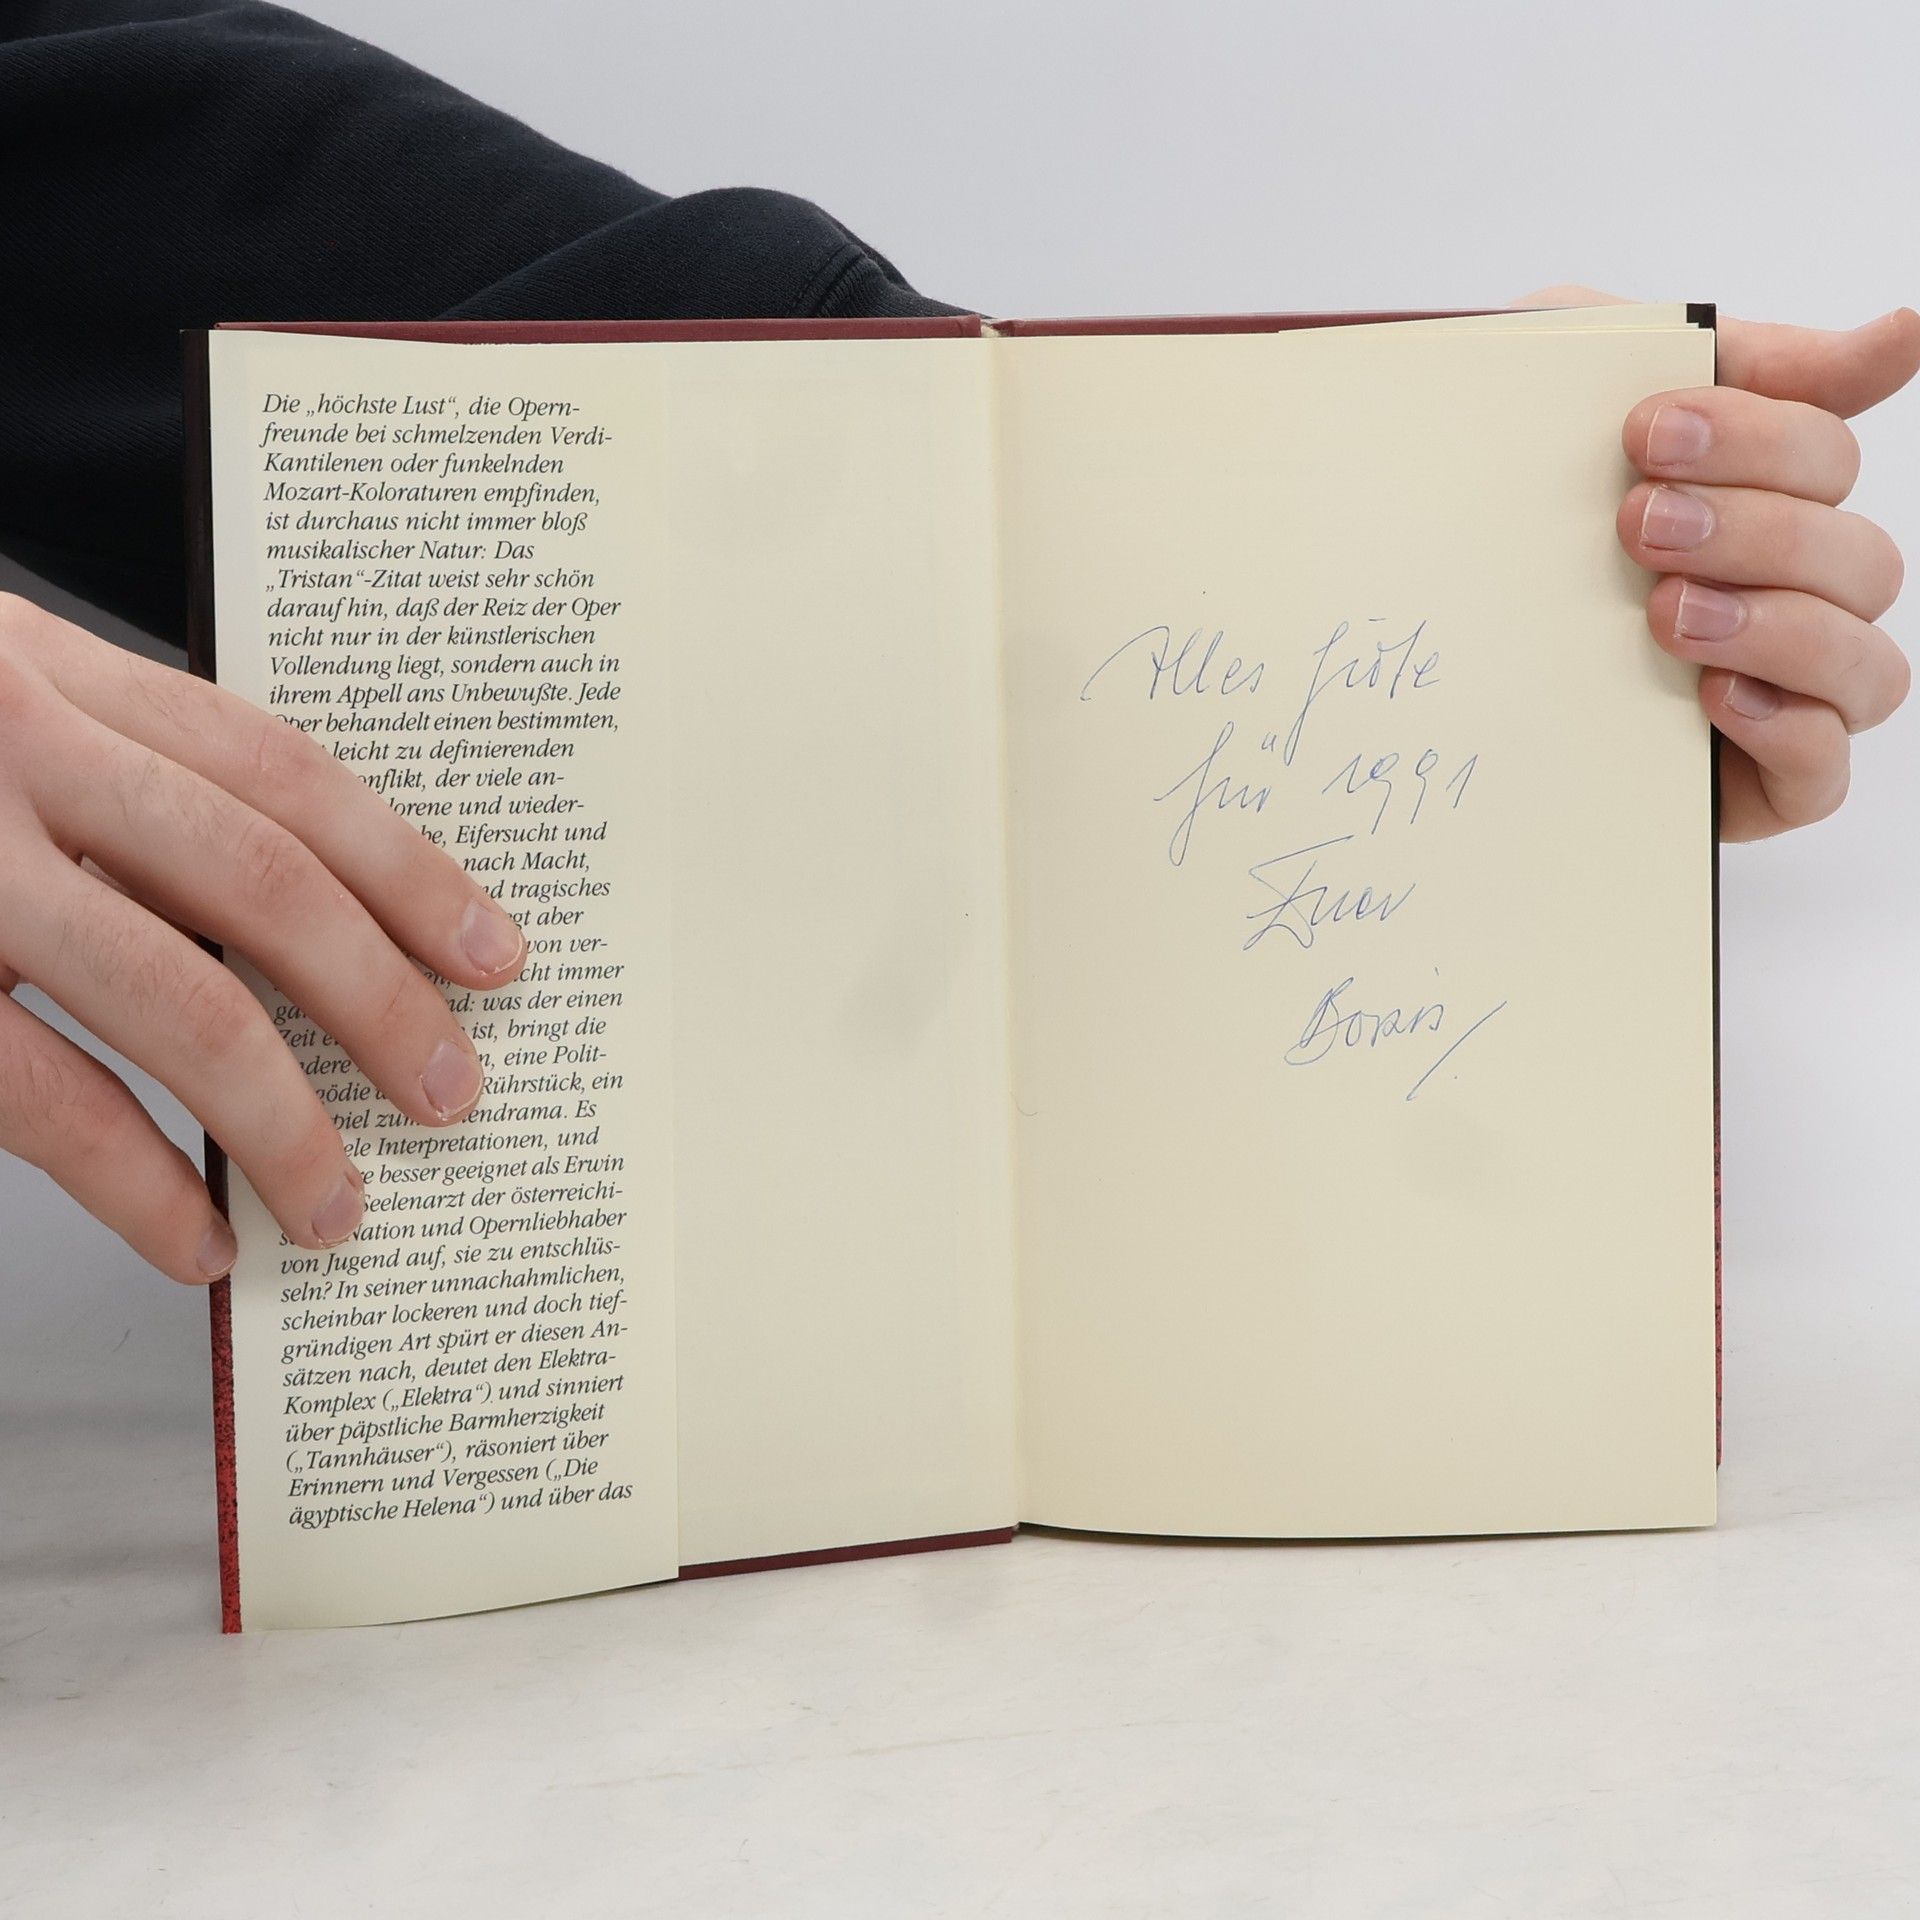 Die „höchste Lust“, die Opern-
freunde bei schmelzenden Verdi-
Kantilenen oder funkelnden
Mozart-Koloraturen empfinden,
ist durchaus nicht immer bloß
musikalischer Natur: Das
„Tristan“-Zitat weist sehr schön
darauf hin, daß der Reiz der Oper
nicht nur in der künstlerischen
Vollendung liegt, sondern auch in
ihrem Appell ans Unbewußte. Jede
Oper behandelt einen bestimmten,
leicht zu definierenden
onflikt, der viele an-
lorene und wieder-
be, Eifersucht und
nach Macht,
nd tragisches
gt aber
von ver-
en, cht immer
ga nd: was der einen
Zeit e ist, bringt die
ndere n, eine Polit-
gödie Rührstück, ein
piel zum endrama. Es
ele Interpretationen, und
re besser geeignet als Erwin
Seelenarzt der österreichi-
Nation und Opernliebhaber
von Jugend auf, sie zu entschlüs-
seln? In seiner unnachahmlichen,
scheinbar lockeren und doch tief-
gründigen Art spürt er diesen An-
sätzen nach, deutet den Elektra-
Komplex („Elektra“) und sinniert
über päpstliche Barmherzigkeit
(„Tannhäuser“), räsoniert über
Erinnern und Vergessen („Die
ägyptische Helena“) und über das
Alles Gute
für 1991
Euer
Boris